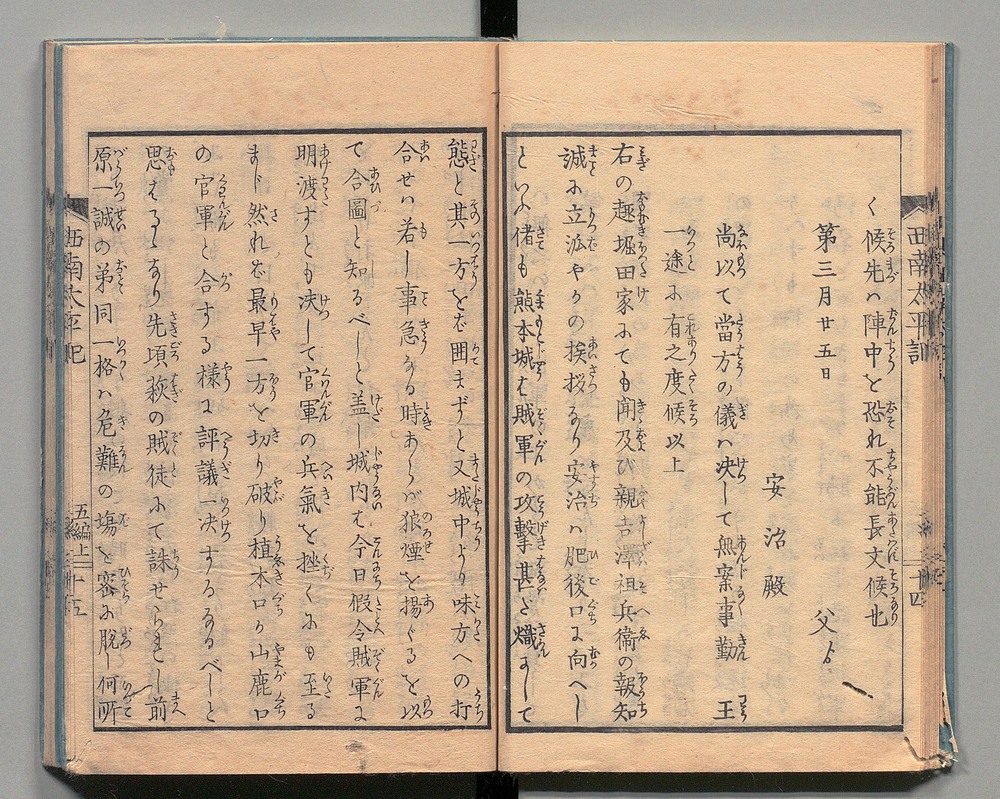 く候先ハ陣中を恐れ不能長文候也
第三月廿五日
父ゟ
安治殿
尚以て當方の儀ハ決して無案事勤王
一途ふ有之度候以上
右の趣堀田家ふても聞及び親吉澤祖兵衛の報知
誠ふ立派やかの挨拶あり安治ハ肥後口ゟ向へし
といふ偖も熊本城ハ賊軍の攻撃甚ど熾ましして
態と其一方をバ囲まずと又城中より味方への打
合せハ若し事急なる時あらバ狼煙を揚ぐるを以
て合圖と知るべしと盖し城内も今日假令賊軍に
明渡すとも决して官軍の兵氣を挫くふも至る
まじ然れバ最早一方を切り破り植木口か山鹿口
の官軍と合する様に評議一决するなるべしと
思はるゝなり先項萩の賊徒ふて誅せられし前
原一誠の弟同一格ハ危難の塲を密ふ脱し何所
西南太平記
西南太平記
五編上
十四
十五